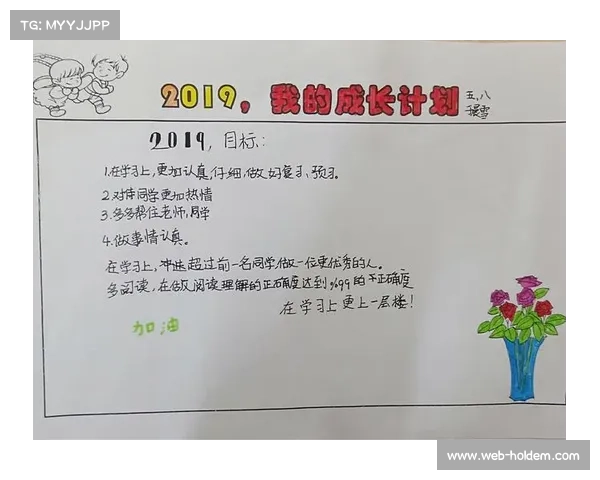 TG: MYYJJPP
2019，我的成长计划
五，八
2019，目标：
1.在学习上，更加认真，仔细，做好复习、预习。
2.对待同学更加热情
3.多多帮住老师，同学
4.做事情认真。
在学习上，冲进超过前一名同学，做一位更优秀的人。
多阅读，在做阅读理解的正确度达到%99的不正确度
在学习上更上一层楼！
加油
www.web-holdem.com